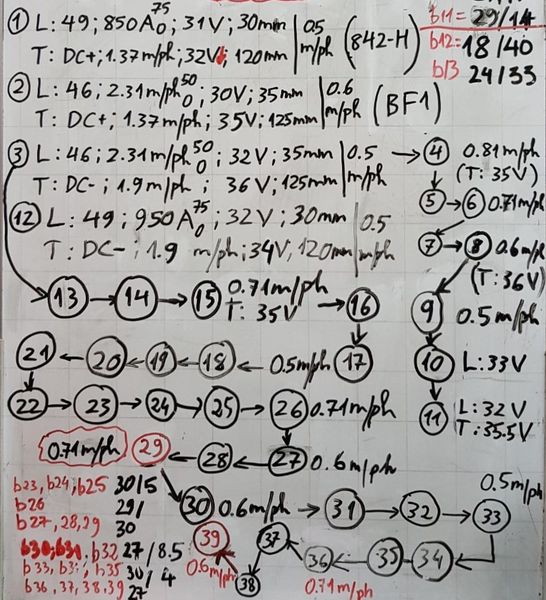 ① L: 49; 850A 75/0; 31V; 30mm | 0.5 m/ph (842-H)
T: DC+; 1.37m/ph; 32V; 120mm
b11 = 29/14
b12 = 18/40
b13 24/33
② L: 46; 2.31m/ph 50/0; 30V; 35mm | 0.6 m/ph (BF1)
T: DC+; 1.37m/ph; 35V; 125mm
③ L: 46; 2.31m/ph 50/0; 32V; 35mm | 0.5 m/ph → ④ 0.81m/ph
T: DC-; 1.9m/ph; 36V; 125mm
(T: 35V)
⑤ → ⑥ 0.71m/ph
⑫ L: 49; 950A 75/0; 32V; 30mm | 0.5 m/ph
T: DC-; 1.9 m/ph; 34V; 120mm
⑦ → ⑧ 0.6m/ph
(T: 36V)
⑬ → ⑭ → ⑮ 0.71m/ph → ⑯
T: 35V
⑨ 0.5m/ph
㉑ ← ⑳ ← ⑲ ← ⑱ ← 0.5m/ph ⑰
⑩ L: 33V
㉒ → ㉓ → ㉔ → ㉕ → ㉖ 0.71m/ph
⑪ L: 32V
T: 35.5V
0.71m/ph ㉙ ← ㉘ ← ㉗ 0.6m/ph
b23, b24, b25 30/5
b26 29/
b27, 28, 29 30
㉚ 0.6m/ph → ㉛ → ㉜ → ㉝ 0.5m/ph
b30, b31, b32 27/8.5
b33, b35 30/4
b36, 37, 38, 39 27
㊴ 0.6m/ph ㊳ ㊲ ← ㊱ ← ㉟ ← ㉞
0.71m/ph